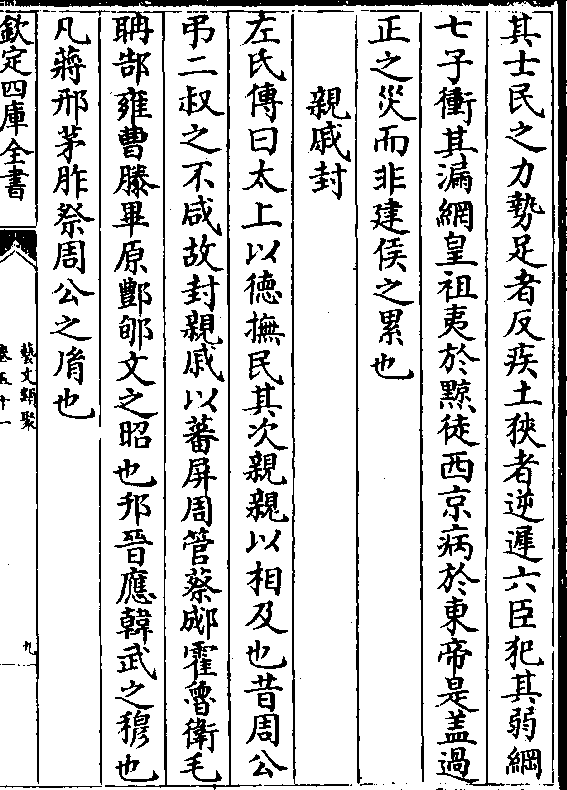 其士民之力勢足者反疾土狹者逆遲六臣犯其弱綱
七子衝其漏網皇祖夷於黥徒西京病於東帝是盖過
正之災而非建侯之累也
親戚封
左氏傳曰太上以徳撫民其次親親以相及也昔周公
弔二叔之不咸故封親戚以蕃屏周管蔡郕霍魯衛毛
聃郜雍曹滕畢原酆郇文之昭也邘晉應韓武之穆也
凡蔣邢茅胙祭周公之胤也
欽定四庫全書
藝文類聚
卷五十一
九